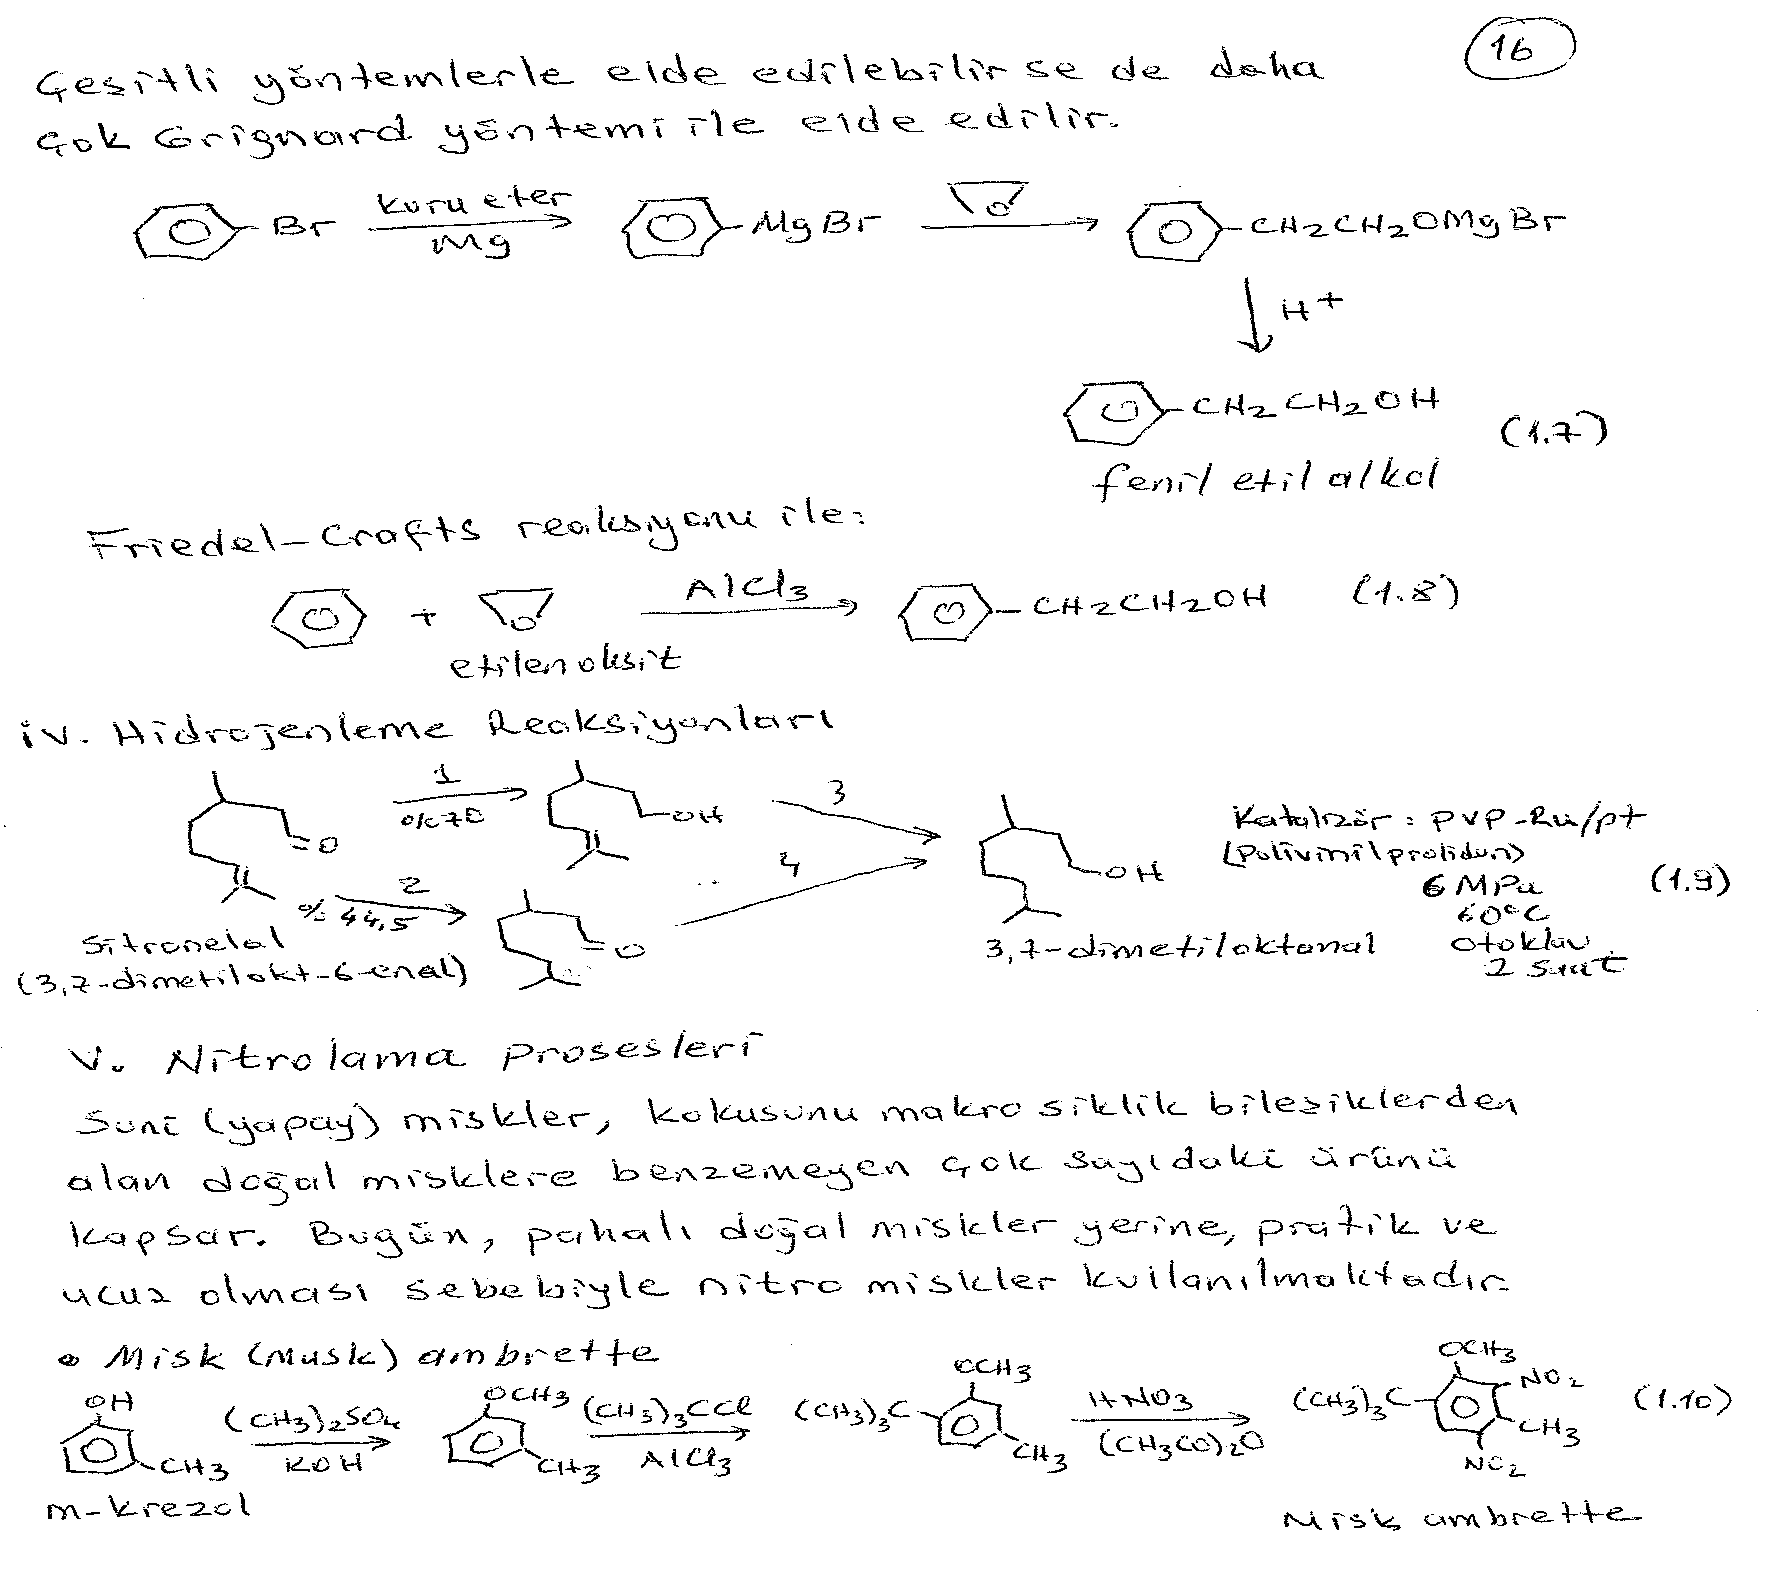 16
Çeşitli yöntemlerle elde edilebilirse de daha
çok Grignard yöntemi ile elde edilir.
Br kuru eter Mg MgBr O CH2CH2OMgBr
H+
CH2CH2OH (1.7)
fenil etil alkol
Friedel-Crafts reaksiyonu ile:
+ O AlCl3 CH2CH2OH (1.8)
etilenoksit
iv. Hidrojenleme Reaksiyonları
1 %70 OH 3
O
Katalizör: PVP-Ru/Pt
4 OH
6 MPa (1.9)
2 % 44,5
60°C
O
Sitronelal 3,7-dimetiloktanal otoklav
(3,7-dimetilokt-6-enal) 2 saat
V. Nitrolama prosesleri
Suni (yapay) miskler, kokusunu makrosiklik bileşiklerden
alan doğal misklere benzemeyen çok sayıdaki ürünü
kapsar. Bugün, pahalı doğal miskler yerine, pratik ve
ucuz olması sebebiyle nitro miskler kullanılmaktadır.
• Misk (Musk) ambrette
OH CH3 (CH3)2SO4 KOH OCH3 CH3 (CH3)3CCl AlCl3 (CH3)3C OCH3 CH3 HNO3 (CH3CO)2O (CH3)3C OCH3 NO2 CH3 NO2 (1.10)
m-krezol
Misk ambrette